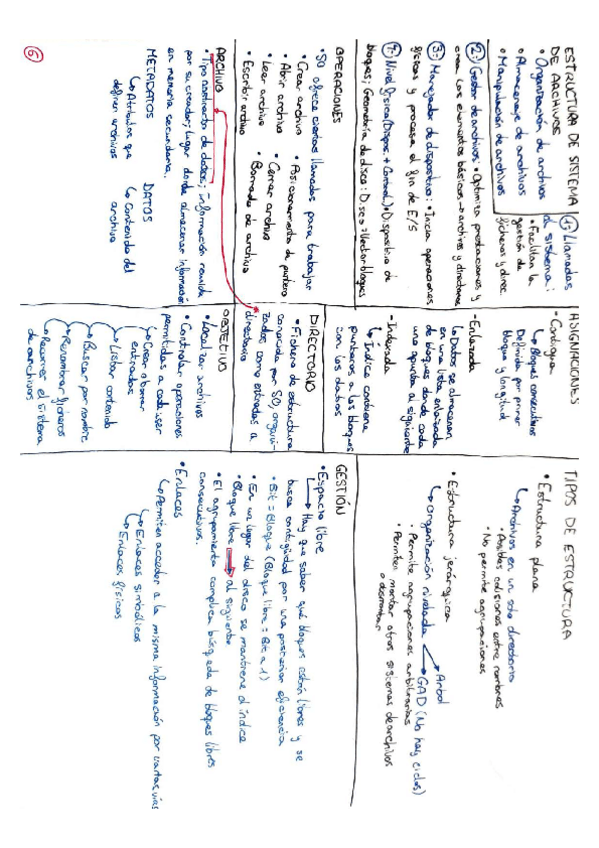 ESTRUCTURA DE SISTEMA
DE ARCHIVOS
• Organización de archivos
• Almacenaje de archivos
• Manipulación de archivos
1: Llamadas
al sistema:
• Facilitar la
gestión de
ficheros y direc.
2: Gestor de archivos: • Optimiza prestaciones y
crea los elementos básicos → archivos y directorios
3: Manejador de dispositivo: • Inicia operaciones
físicas y procesa el fin de E/S
4: Nivel físico (Dispos. + Control.) • Dispositivo de
bloques; Geometría de disco: Disco = Vector bloques
OPERACIONES
• SO ofrece ciertas llamadas para trabajar
• Crear archivo
• Abrir archivo
• Leer archivo
• Escribir archivo
• Posicionamiento de puntero
• Cerrar archivo
• Borrado de archivo
ARCHIVO
• Tipo abstracto de datos; información reunida
por su creador; lugar donde almacenar información
en memoria secundaria.
METADATOS
↳ Atributos que
definen archivos
DATOS
↳ Contenido del
archivo
6
ASIGNACIONES
- Contigua
↳ Bloques consecutivos
Definida por primer
bloque y longitud
- Enlazada
↳ Datos se almacenan
en una lista enlazada
de bloques donde cada
uno apunta al siguiente
- Indexada
↳ Índice contiene
punteros a los bloques
con los datos
DIRECTORIO
• Fichero de estructura
conocida por SO, organi-
zados como entradas a
directorio
OBJETIVO
• Localizar archivos
• Controlar operaciones
permitidas a cada user
↳ Crear o borrar
entradas
↳ Listar contenido
↳ Buscar por nombre
↳ Renombrar ficheros
↳ Recorres el sistema
de archivos
TIPOS DE ESTRUCTURA
• Estructura plana
↳ Archivos en un solo directorio
• Posibles colisiones entre nombres
• No permite agrupaciones
• Estructura jerárquica
↳ Organización nivelada
Árbol
GAD (No hay ciclos)
• Permite agrupaciones arbitrarias
• Permiten montar otros sistemas de archivos
o desmontar
GESTIÓN
• Espacio libre
↳ Hay que saber qué bloques están libres y se
busca contigüidad por una posterior eficiencia
• Bit = Bloque (Bloque libre = Bit a 1)
• En un lugar del disco se mantiene el índice
• Bloque libre → al siguiente
• El agrupamiento complica búsqueda de bloques libres
consecutivos.
• Enlaces
↳ Permiten acceder a la misma información por varias vías
↳ Enlaces simbólicos
↳ Enlaces físicos